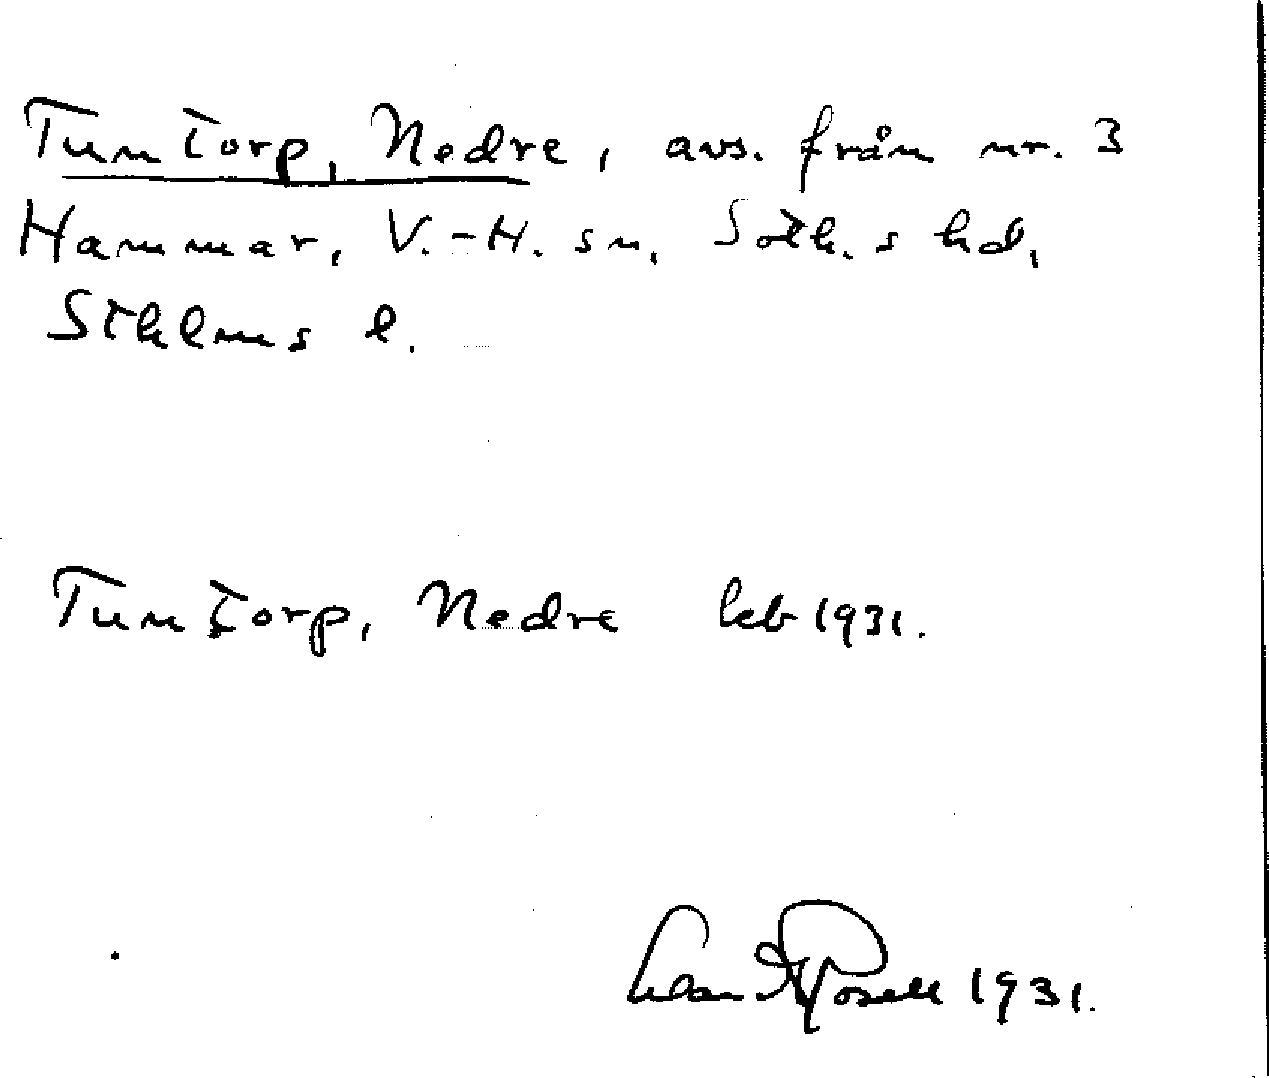 Tuntorp, Nedre, avs. från nr. 3
Hammar, V.-H. sn, Soth. s hd,
Sthlms l.
Tuntorp, Nedre keb 1931.
1931.